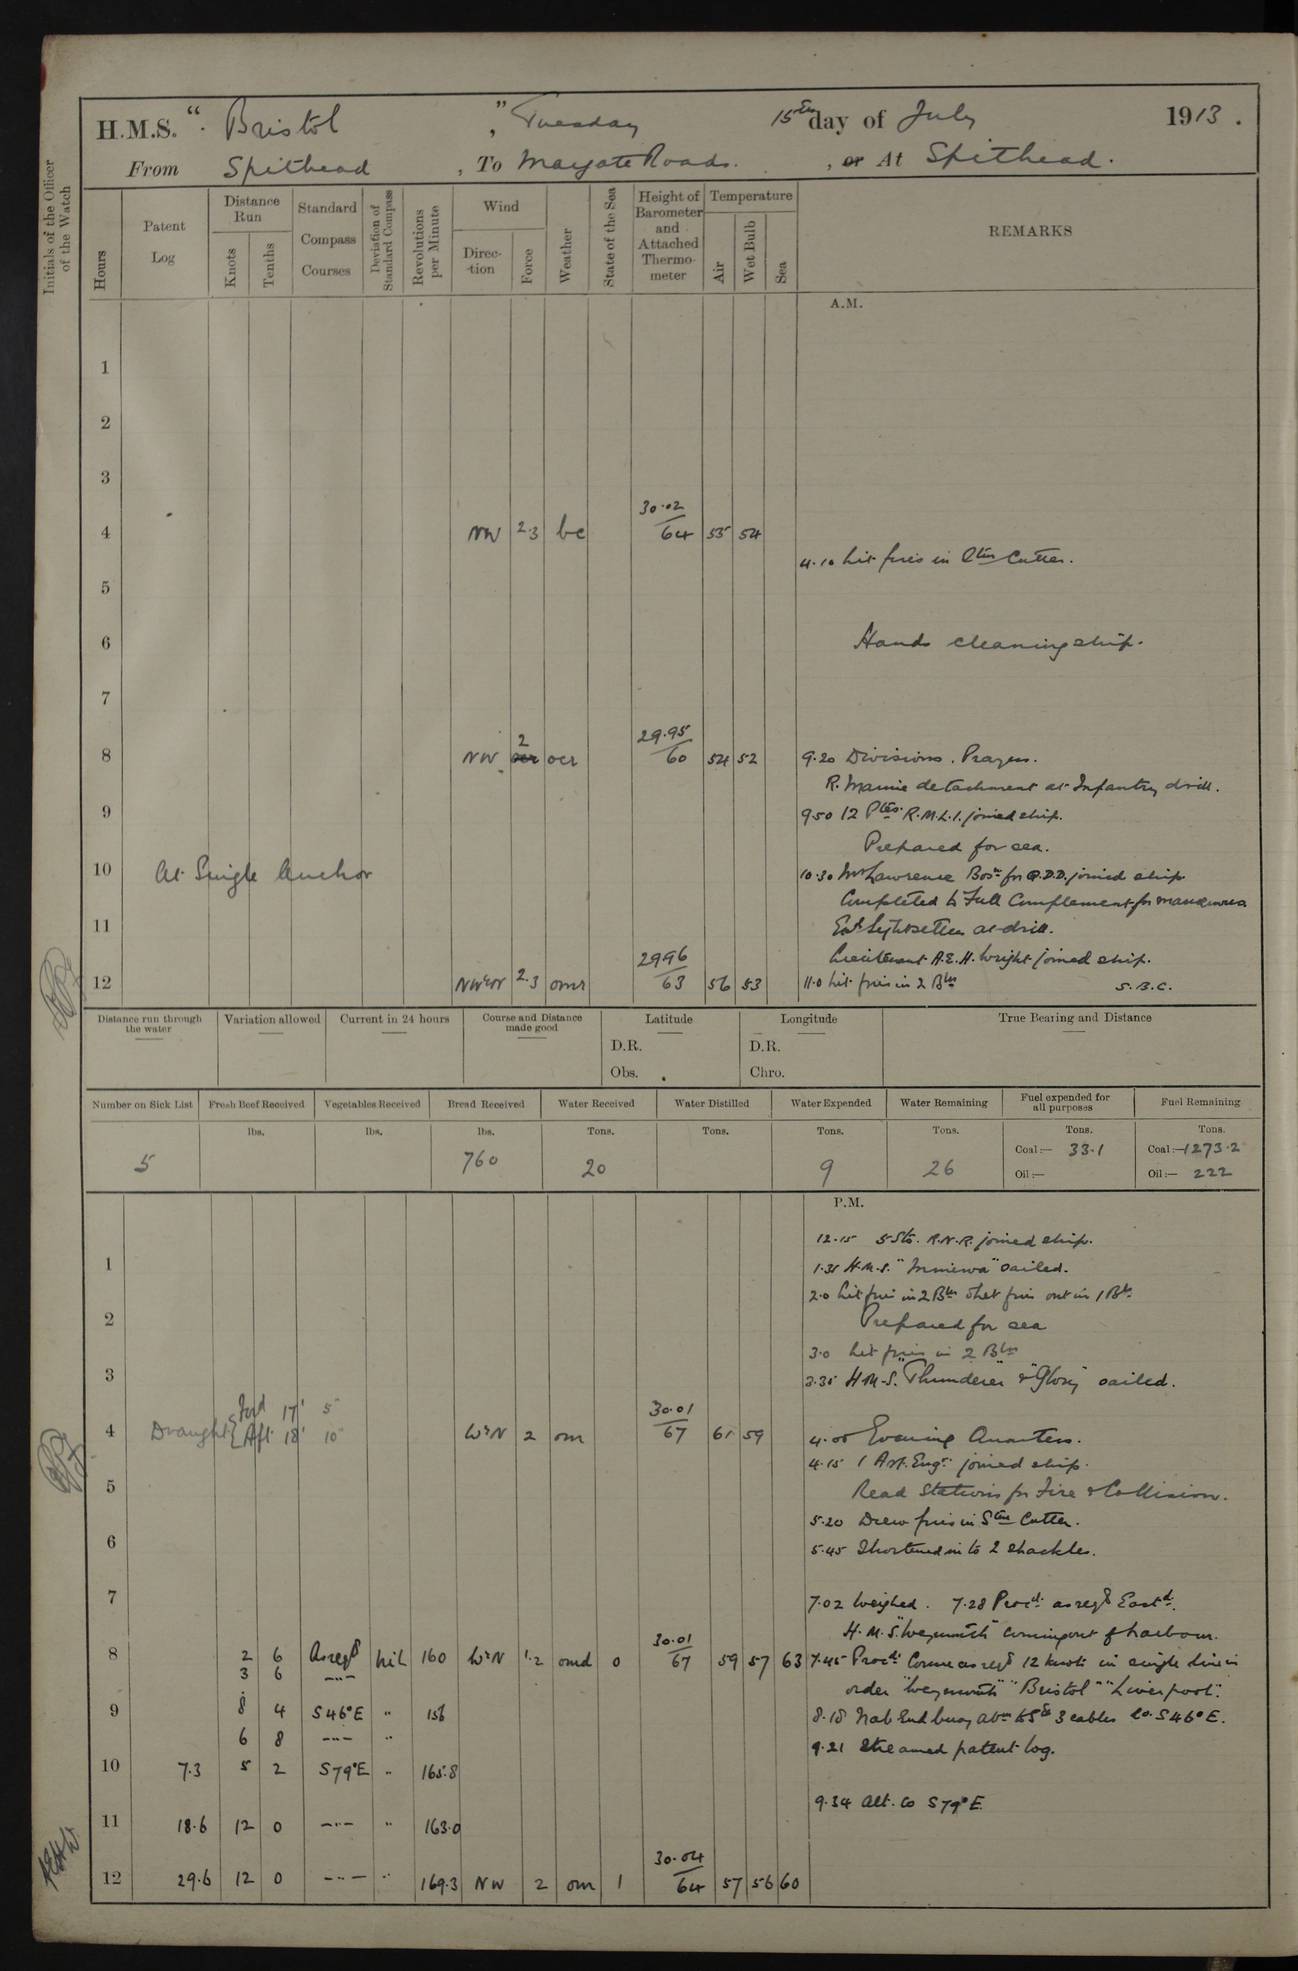 H.M.S. " Bristol ", Tuesday 15th day of July 1913.
From Spithead, To Margate Roads., or At Spithead.
Initials of the Officer of the Watch
Hours
Patent Log
Distance Run
Knots
Tenths
Standard Compass Courses
Deviation of Standard Compass
Revolutions per Minute
Wind
Direc-tion
Force
Weather
State of the Sea
Height of Barometer and Attached Thermo-meter
Temperature
Air
Wet Bulb
Sea
REMARKS
A.M.
1
2
3
4 NW 2.3 bc 30.02/64 55 54
4.10 Lit fires in Cutter.
5
6 Hands cleaning ship.
7
8 NW 2 ocr 29.95/60 54 52 9.20 Divisions. Prayers.
R. Marine detachment at Infantry drill.
9 9.50 12 Ptes. R.M.L.I. joined ship.
Prepared for sea.
10 At Single Anchor 10.30 Mr Lawrence Bosn joined ship
Completed to Full Complement for manoeuvres
11 at drill.
Lieutenant A.E.H. Wright joined ship.
12 NWxW 2.3 omr 29.96/63 56 53 11.0 Lit fires in 2 Blrs S.B.C.
Distance run through the water
Variation allowed
Current in 24 hours
Course and Distance made good
Latitude
D.R.
Obs.
Longitude
D.R.
Chro.
True Bearing and Distance
Number on Sick List
Fresh Beef Received
Vegetables Received
Bread Received
Water Received
Water Distilled
Water Expended
Water Remaining
Fuel expended for all purposes
Fuel Remaining
lbs. lbs. lbs. Tons. Tons. Tons. Tons. Tons. Tons.
5 760 20 9 26
Coal :— 33.1
Oil :—
Coal :— 1273.2
Oil :— 222
P.M.
12.15 5 Sto. R.N.R. joined ship.
1 1.35 H.M.S. "Minerva" sailed.
2.0 Lit fires in 2 Blrs & let fires out in 1 Blr.
2 Prepared for sea
3.0 Let fires in 2 Blrs
3 3.35 H.M.S. "Thunderer" & "Glory" sailed.
Draught { Ford 17' 5"
Aft 18' 10"
4 WxN 2 om 30.01/67 61 59 4.00 Evening Quarters.
4.15 1 Art. Engr. joined ship.
5 Read Stations for Fire & Collision.
5.20 Drew fires in Stm Cutter.
6 5.45 Shortened in to 2 shackles.
7 7.02 Weighed. 7.28 Procd. as reqd Eastd.
H.M.S. "Weymouth" coming out of harbour.
8 2 6 As reqd Nil 160 WxN 1.2 omd 0 30.01/67 59 57 63 7.45 Procd. Course as reqd 12 knots in single line in
3 6 —"— order "Weymouth" "Bristol" "Liverpool".
9 8 4 S46°E " 156 8.18 Nab End buoy abm to Sd 3 cables Co. S46°E.
6 8 —"— " 9.21 Streamed patent log.
10 7.3 5 2 S79°E " 165.8
9.34 Alt. Co S79°E.
11 18.6 12 0 —"— " 163.0
12 29.6 12 0 —"— " 169.3 NW 2 om 1 30.04/64 57 56 60